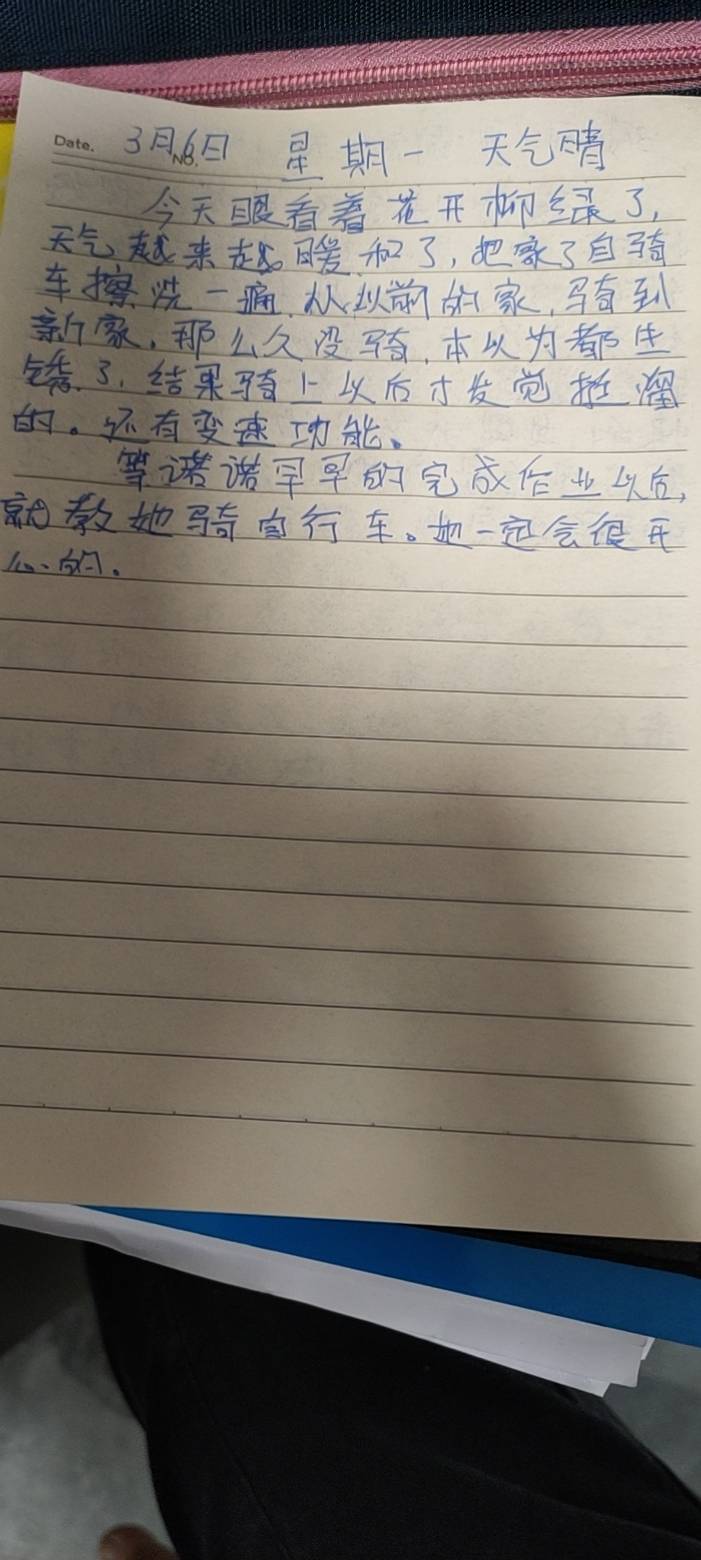 Date. 3月6日 星期一 天气晴
No.
今天眼看着花开柳绿了,
天气越来越暖和了,把家了自骑
车擦洗一痛.从以前的家,骑到
新家.那么久没骑.本以为都生
锈了.结果骑上以后才发觉挺溜
的。还有变速功能。
等诺诺早早的完成作业以后,
就教她骑自行车。她一定会很开
心的.